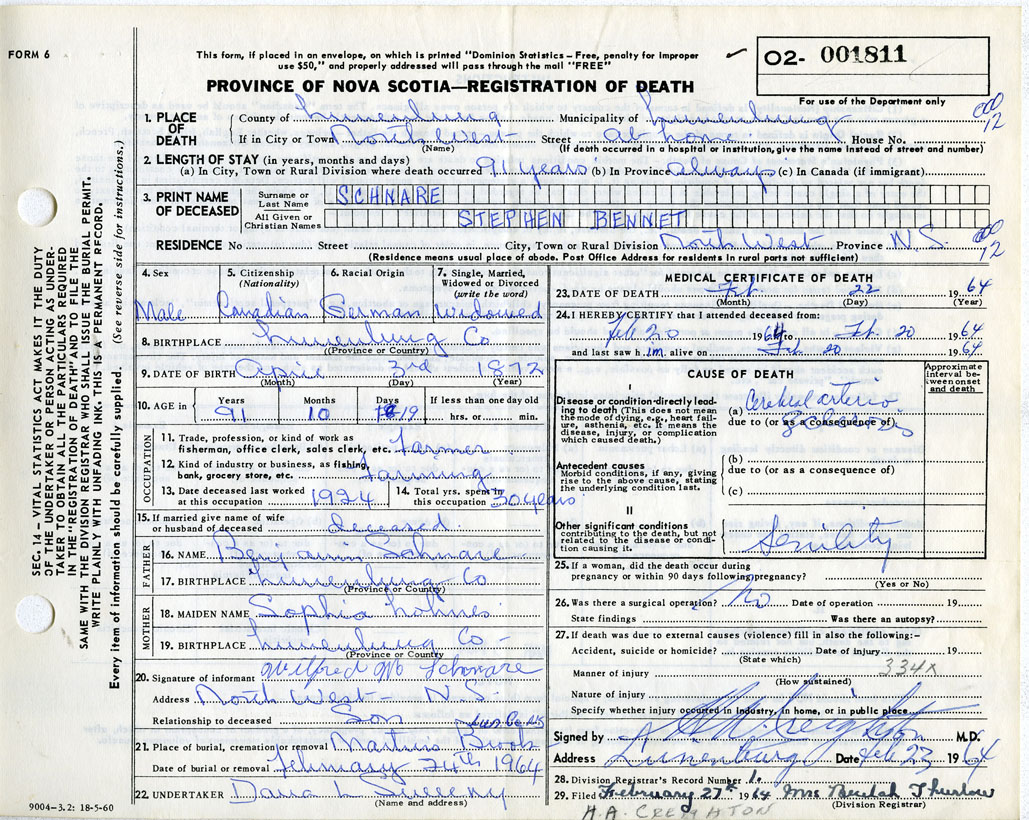 FORM 6
This form, if placed in an envelope, on which is printed "Dominion Statistics – Free, penalty for improper
use $50," and properly addressed will pass through the mail "FREE"
O2- 001811
PROVINCE OF NOVA SCOTIA—REGISTRATION OF DEATH
For use of the Department only
1. PLACE OF DEATH County of Lunenburg Municipality of Lunenburg
If in City or Town North West Street at home House No.
(Name) (If death occurred in a hospital or institution, give the name instead of street and number)
12
2. LENGTH OF STAY (in years, months and days)
(a) In City, Town or Rural Division where death occurred 91 years (b) In Province always (c) In Canada (if immigrant)
3. PRINT NAME OF DECEASED Surname or Last Name SCHNARE
All Given or Christian Names STEPHEN BENNETT
RESIDENCE No Street City, Town or Rural Division North West Province N.S.
(Residence means usual place of abode. Post Office Address for residents in rural parts not sufficient)
12
4. Sex Male
5. Citizenship (Nationality) Canadian
6. Racial Origin German
7. Single, Married, Widowed or Divorced (write the word) Widowed
8. BIRTHPLACE Lunenburg Co
(Province or Country)
9. DATE OF BIRTH April 3rd 1872
(Month) (Day) (Year)
10. AGE in Years 91 Months 10 Days 19 If less than one day old hrs. or min.
OCCUPATION
11. Trade, profession, or kind of work as
fisherman, office clerk, sales clerk, etc. Farmer
12. Kind of industry or business, as fishing,
bank, grocery store, etc. Farming
13. Date deceased last worked at this occupation 1924
14. Total yrs. spent in this occupation 30 years
15. If married give name of wife
or husband of deceased deceased
FATHER
16. NAME Benjamin Schnare
17. BIRTHPLACE Lunenburg Co
(Province or Country)
MOTHER
18. MAIDEN NAME Sophia Lohnes
19. BIRTHPLACE Lunenburg Co –
(Province or Country)
20. Signature of informant Wilfred Schnare
Address North West – N.S.
Relationship to deceased Son
Lun. Co. NS
21. Place of burial, cremation or removal Martins Brook
Date of burial or removal February 24th 1964
22. UNDERTAKER Dana L Sweeny
(Name and address)
9004–3.2: 18-5-60
MEDICAL CERTIFICATE OF DEATH
23. DATE OF DEATH Feb. 22 1964
(Month) (Day) (Year)
24. I HEREBY CERTIFY that I attended deceased from:
Feb 20 1964 to Feb. 20 1964
and last saw him alive on Feb 20 1964
CAUSE OF DEATH
Approximate interval between onset and death
I
Disease or condition directly leading to death (This does not mean the mode of dying, e.g., heart failure, asthenia, etc. It means the disease, injury, or complication which caused death.)
(a) Cerebral arterio
due to (or as a consequence of) sclerosis
Antecedent causes
Morbid conditions, if any, giving rise to the above cause, stating the underlying condition last.
(b)
due to (or as a consequence of)
(c)
II
Other significant conditions contributing to the death, but not related to the disease or condition causing it.
Senility
25. If a woman, did the death occur during
pregnancy or within 90 days following pregnancy?
(Yes or No)
26. Was there a surgical operation? No Date of operation 19
State findings Was there an autopsy?
27. If death was due to external causes (violence) fill in also the following:–
Accident, suicide or homicide? Date of injury 19
(State which)
334X
Manner of injury
(How sustained)
Nature of injury
Specify whether injury occurred in industry, in home, or in public place
Signed by H.A. Creighton M.D.
Address Lunenburg Date Feb 23 1964
28. Division Registrar's Record Number 1.
29. Filed February 27th 1964 Mrs Beulah Thurlow
(Division Registrar)
H.A. CREIGHTON
SEC. 14 – VITAL STATISTICS ACT MAKES IT THE DUTY
OF THE UNDERTAKER OR PERSON ACTING AS UNDER-
TAKER TO OBTAIN ALL THE PARTICULARS REQUIRED
IN THE "REGISTRATION OF DEATH" AND TO FILE THE
SAME WITH THE DIVISION REGISTRAR WHO SHALL ISSUE THE BURIAL PERMIT.
WRITE PLAINLY WITH UNFADING INK. THIS IS A PERMANENT RECORD.
Every item of information should be carefully supplied. (See reverse side for instructions.)